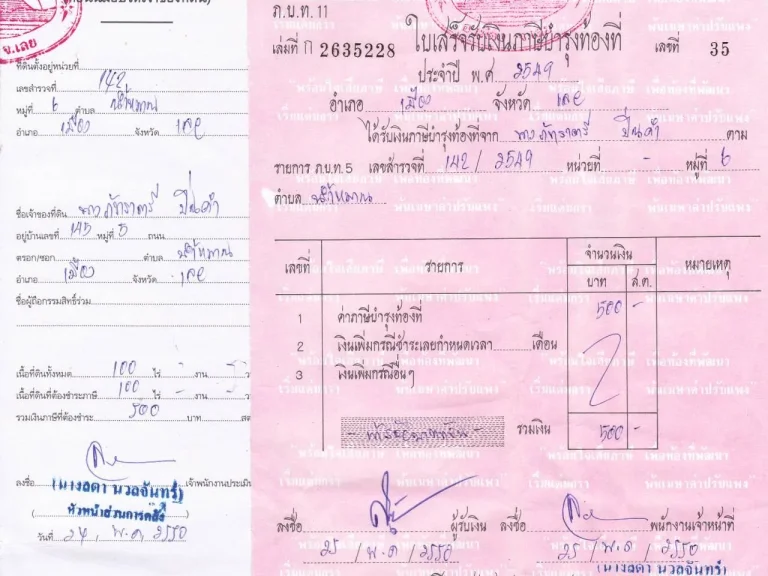 จ.เลย
ที่ดินตั้งอยู่หน่วยที่
เลขสำรวจที่ 142
หมู่ที่ 6 ตำบล
อำเภอ เมือง จังหวัด เลย
ชื่อเจ้าของที่ดิน
อยู่บ้านเลขที่ 145 หมู่ที่ 5 ถนน
ตรอก/ซอก ตำบล
อำเภอ เมือง จังหวัด เลย
ชื่อผู้ถือกรรมสิทธิ์ร่วม
เนื้อที่ดินทั้งหมด 100 ไร่ - งาน - ว
เนื้อที่ดินที่ต้องชำระภาษี 100 ไร่ - งาน - ว
รวมเงินภาษีที่ต้องชำระ 500 บาท สต
ลงชื่อ เจ้าพนักงานประเมิน
(นางลดา นวลจันทร์)
หัวหน้าส่วนการคลัง
วันที่ 24 พ.ค. 2550
ภ.บ.ท.11
เล่มที่ ก 2635228 ใบเสร็จรับเงินภาษีบำรุงท้องที่ เลขที่ 35
ประจำปี พ.ศ. 2549
อำเภอ เมือง จังหวัด เลย
ได้รับเงินภาษีบำรุงท้องที่จาก ตาม
รายการ ภ.บ.ท.5 เลขสำรวจที่ 142 / 2549 หน่วยที่ - หมู่ที่ 6
ตำบล
เลขที่ รายการ จำนวนเงิน หมายเหตุ
บาท ส.ต.
1 ค่าภาษีบำรุงท้องที่ 500 -
2 เงินเพิ่มกรณีชำระเลยกำหนดเวลา เดือน
3 เงินเพิ่มกรณีอื่นๆ
รวมเงิน 500 -
ลงชื่อ ผู้รับเงิน ลงชื่อ พนักงานเจ้าหน้าที่
25 / พ.ค. / 2550 25 / พ.ค. / 2550
(นางลดา นวลจันทร์)